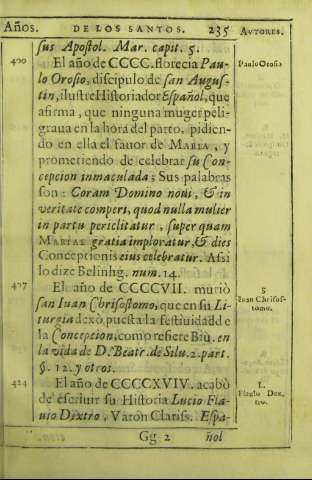 Años. DE LOS SANTOS. 235 AVTORES.
sus Apostol. Mar. capit. 5.
400 El año de CCCC. florecia Pau- Paulo Orosio
lo Orosio, discipulo de san Augus-
tin, ilustre Historiador Español, que
afirma, que ninguna muger peli-
graua en la hora del parto, pidien-
do en ella el fauor de MARIA, y
prometiendo de celebrar su Con-
cepcion inmaculada; Sus palabras
son: Coram Domino noui, & in
veritate comperi, quod nulla mulier
in partu periclitatur, super quam
MARIAE gratia imploratur, & dies
Conceptionis eius celebratur. Assi
lo dize Belinhg. num. 14.
407 El año de CCCCVII. muriò S
san Iuan Chrisostomo, que en su Li- Iuan Chrisos-
turgia dexò puesta la festiuidad de tomo.
la Concepcion, como refiere Biu. en
la vida de D. Beatr. de Silu. 2. part.
§. 12. y otros.
424 El año de CCCCXXIV. acabò L.
de escriuir su Historia Lucio Fla- Flauio Dex-
uio Dextro, Varon Clariss. Espa- tro.
Gg 2 ñol